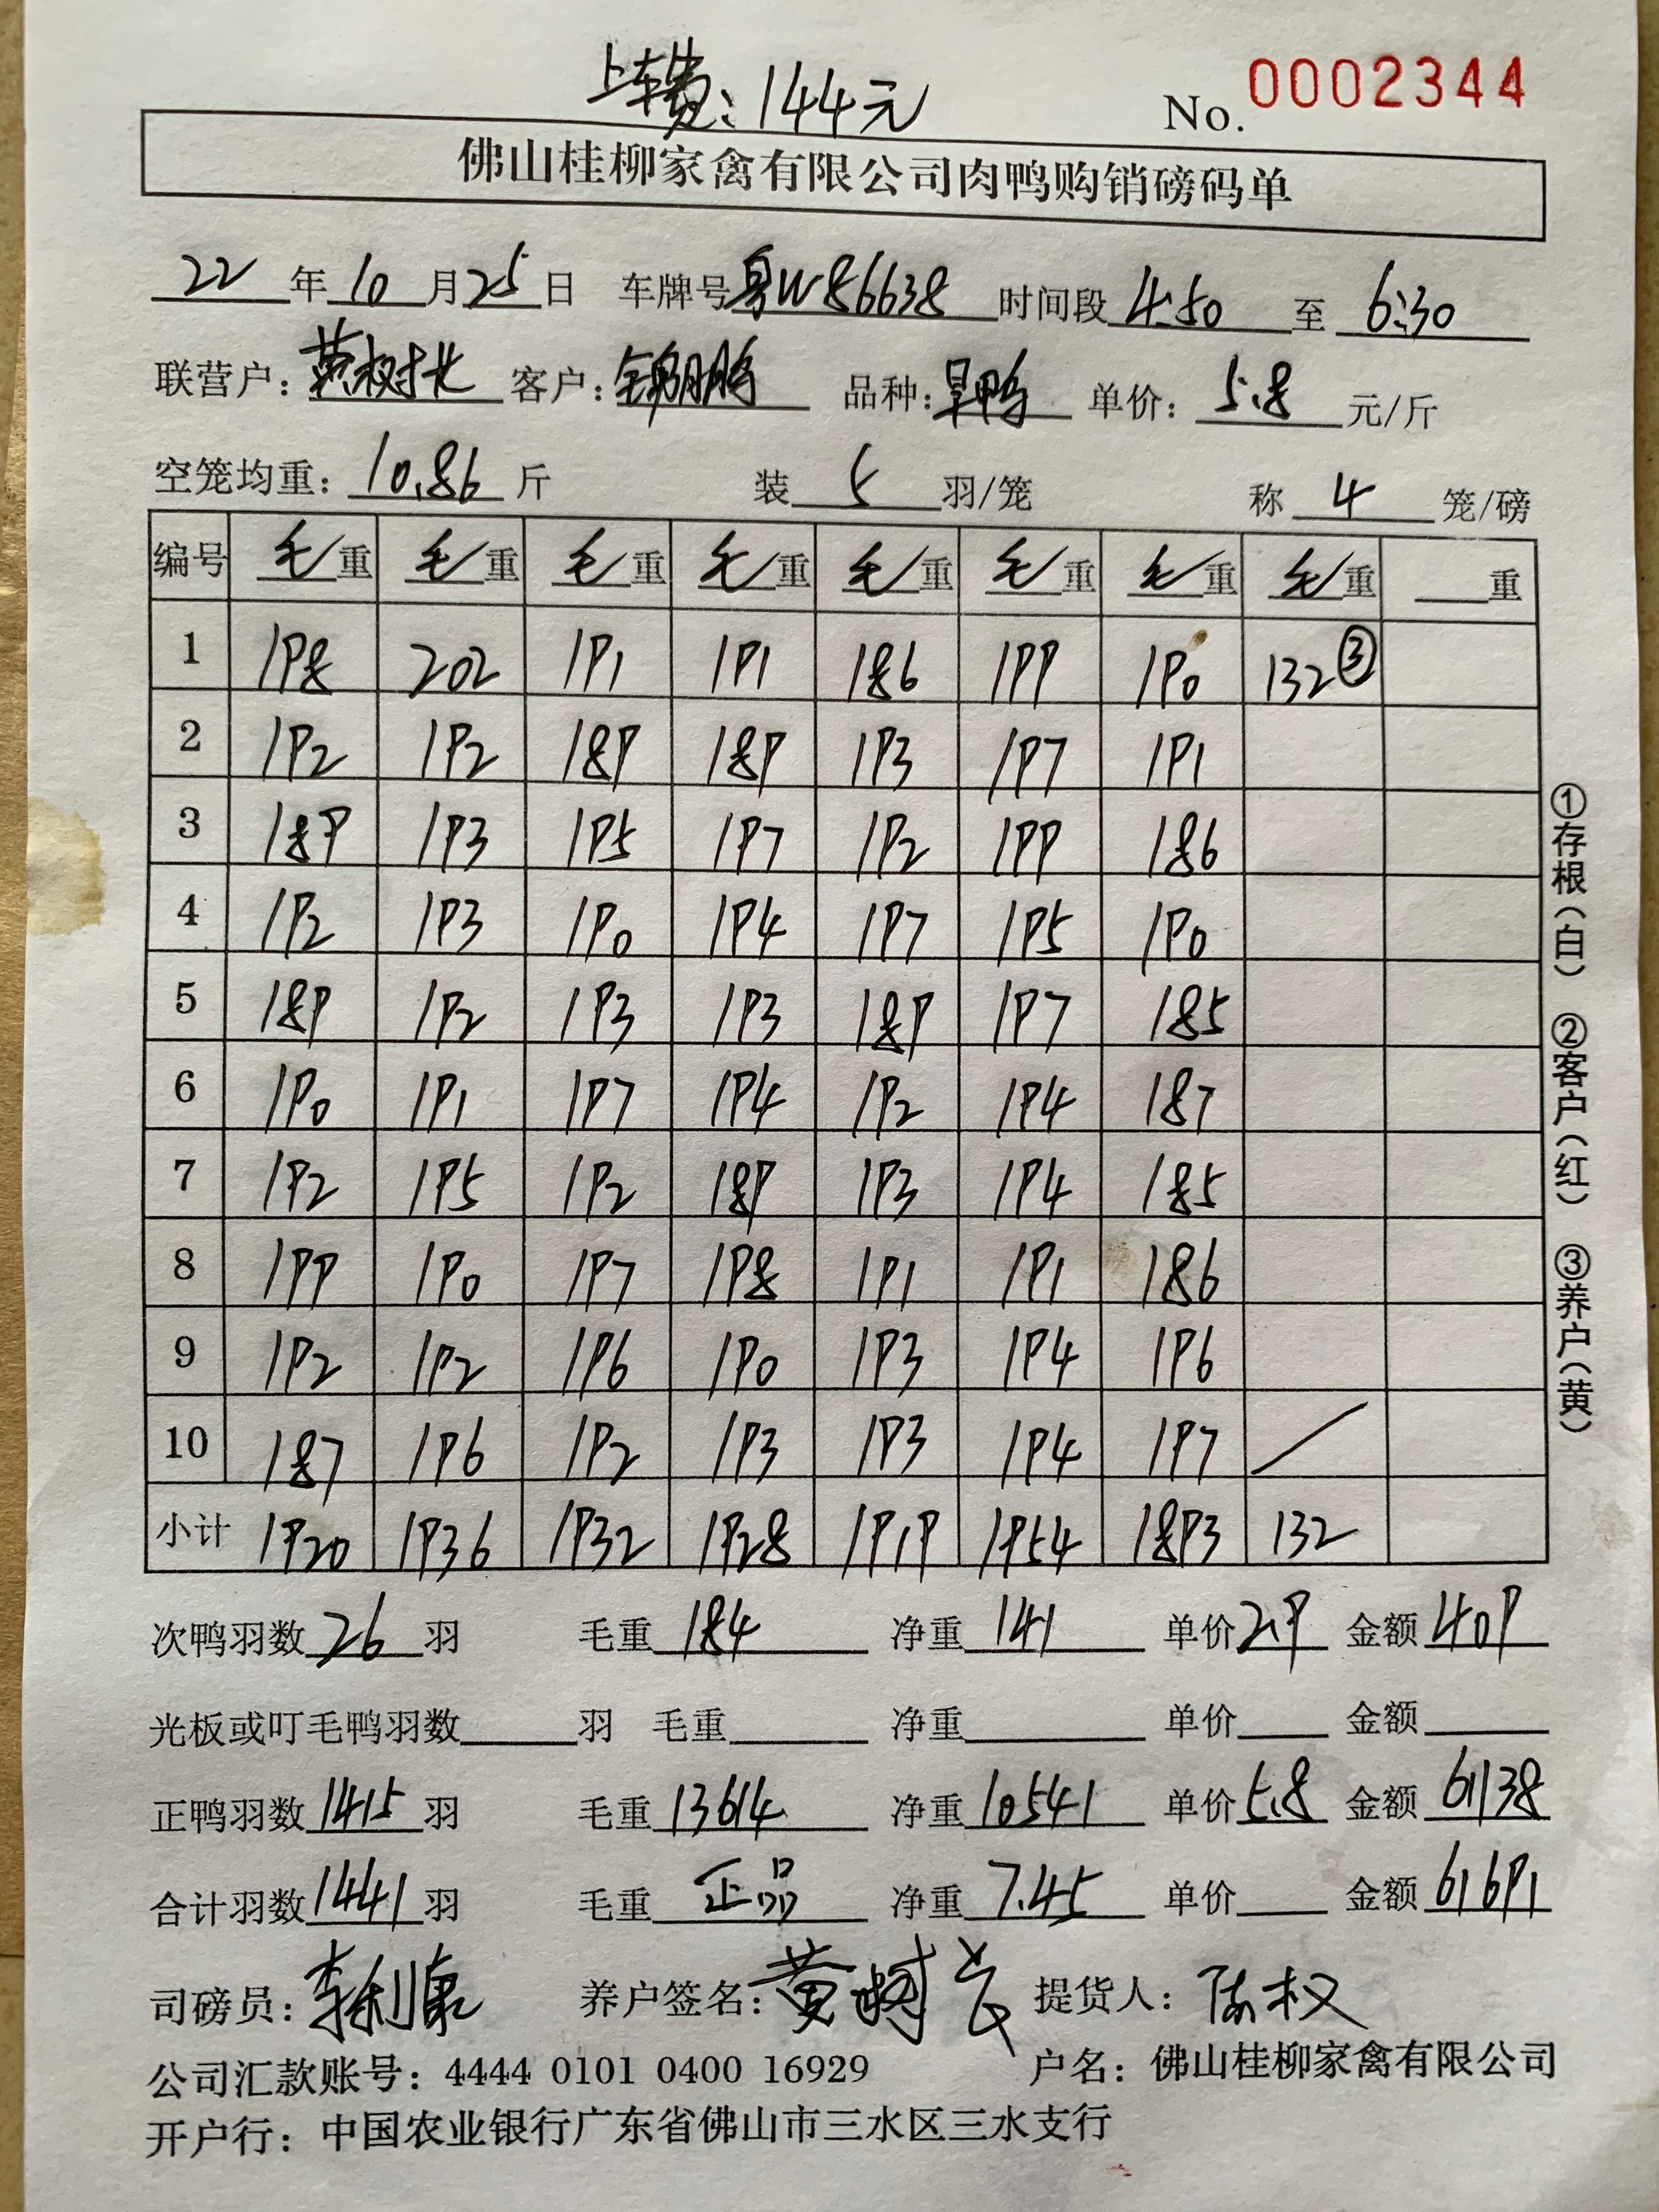 上车费：144元
No. 0002344
佛山桂柳家禽有限公司肉鸭购销磅码单
22年10月25日 车牌号粤W86638 时间段4:50至6:30
联营户： 客户：锦鹏 品种：旱鸭 单价：5.8元/斤
空笼均重：10.86斤 装5羽/笼 称4笼/磅
编号 毛重 毛重 毛重 毛重 毛重 毛重 毛重 毛重 重
1 198 202 191 191 186 199 190 132③
2 192 192 189 189 193 197 191
3 189 193 195 197 192 199 186
4 192 193 190 194 197 195 190
5 189 192 193 193 189 197 185
6 190 191 197 194 192 194 187
7 192 195 192 189 193 194 185
8 199 190 197 198 191 191 186
9 192 192 196 190 193 194 196
10 187 196 192 193 193 194 197 /
小计 1920 1936 1932 1928 1919 1954 1893 132
次鸭羽数26羽 毛重184 净重141 单价2.9 金额409
光板或叮毛鸭羽数 羽 毛重 净重 单价 金额
正鸭羽数1415羽 毛重13614 净重10541 单价5.8 金额61138
合计羽数1441羽 毛重正品 净重7.45 单价 金额61691
司磅员：李利康 养户签名：黄树 提货人：陈权
公司汇款账号：4444 0101 0400 16929 户名：佛山桂柳家禽有限公司
开户行：中国农业银行广东省佛山市三水区三水支行
①存根（白） ②客户（红） ③养户（黄）